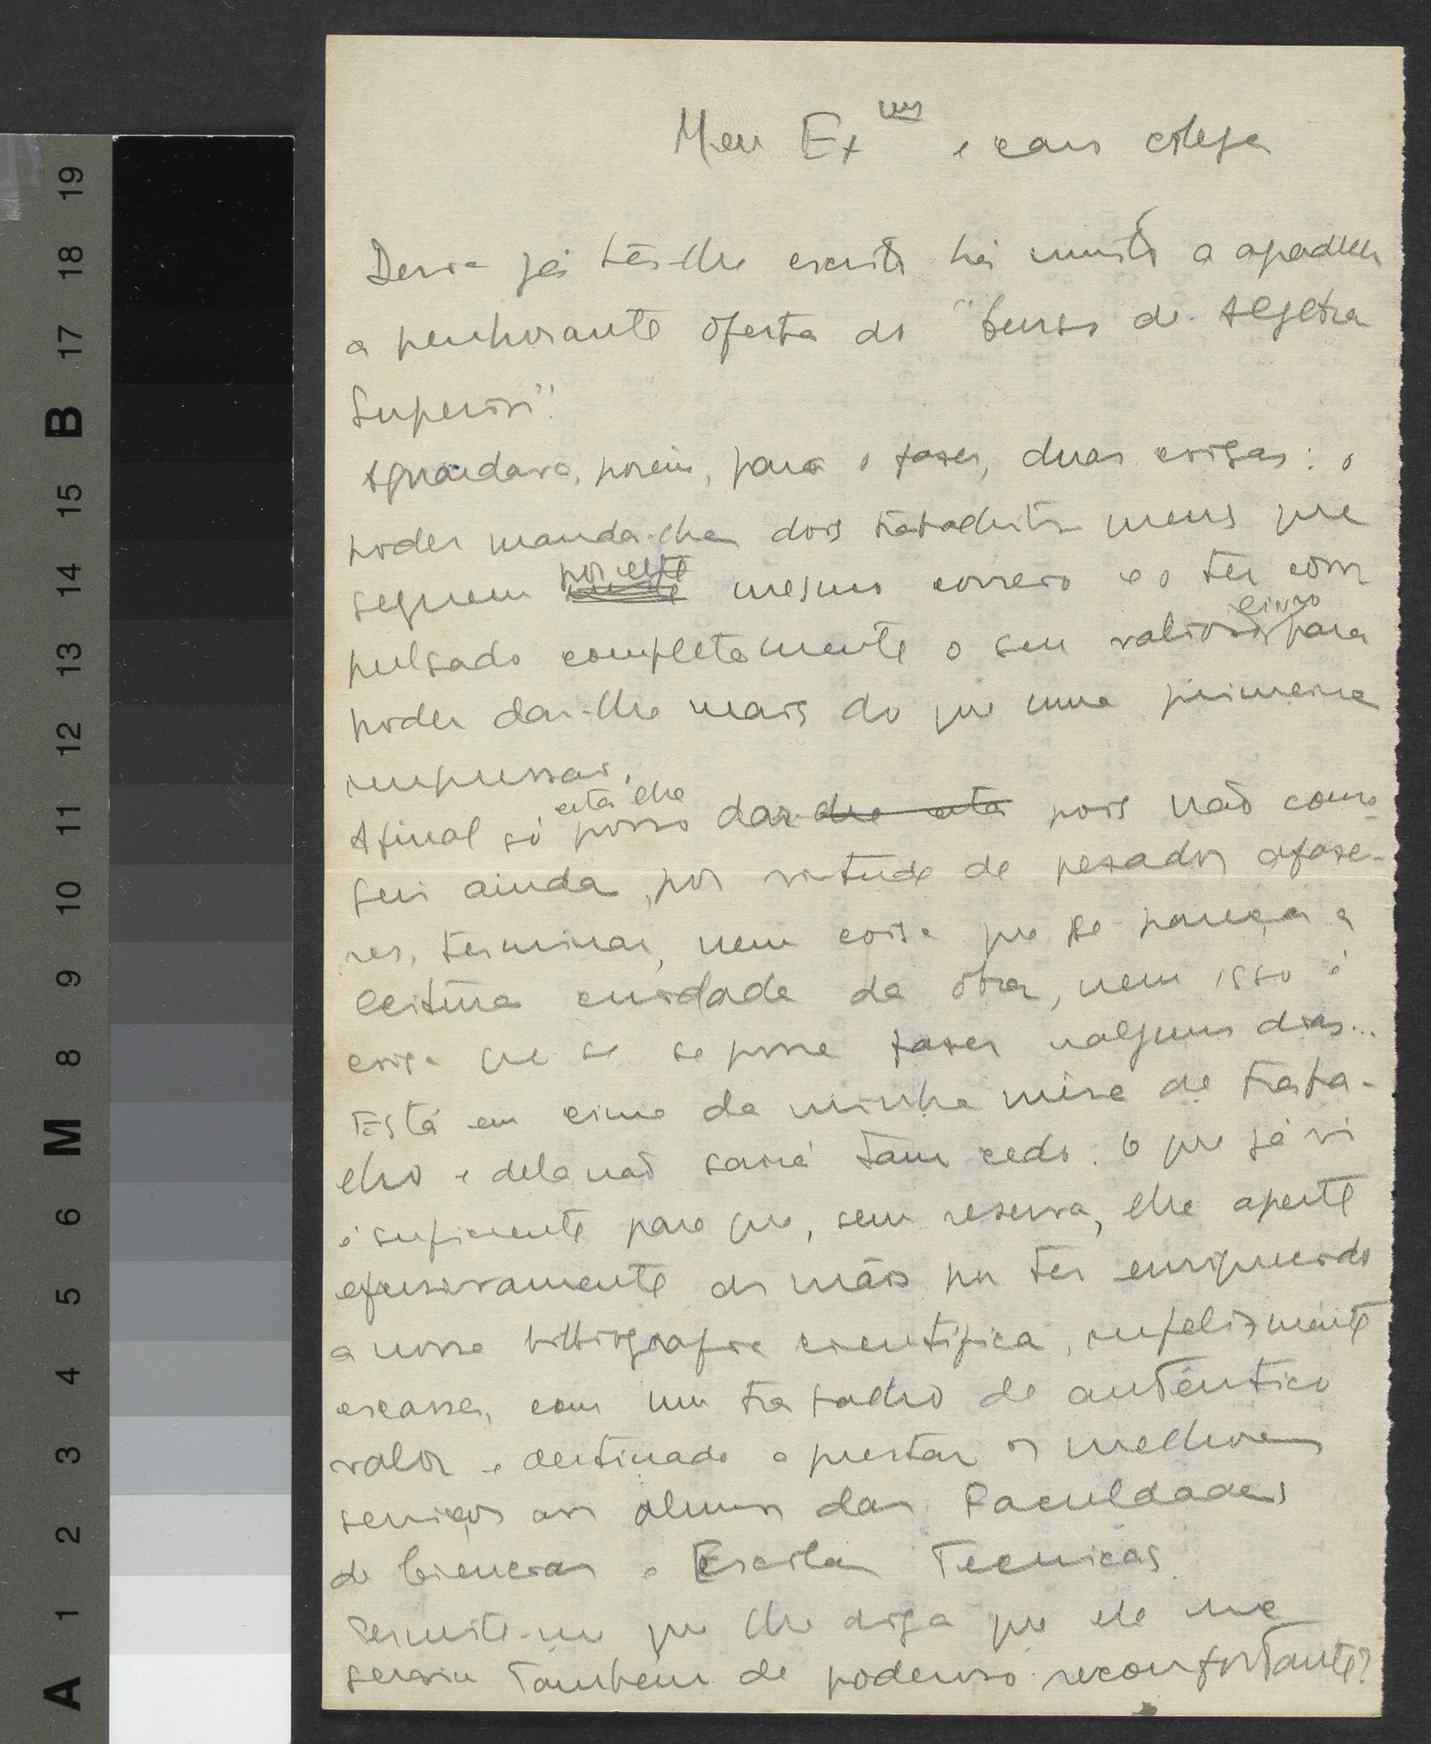 Meu Exmo e caro colega
Devia já têr-lhe escrito há muito a agradecer
a penhorante oferta do "Curso de Algebra
Superior".
Aguardava, porém, para o fazer, duas coisas: o
poder mandar-lhe dois trabalhitos meus que
seguem por este mesmo correio e o ter com
pulsado completamente o seu valioso livro para
poder dar-lhe mais do que uma primeira
impressão.
Afinal só posso dar-lhe esta pois não conse-
gui ainda, por virtude de pesados afaze-
res, terminar, nem coisa que se pareça a
leitura cuidada da obra, nem isso é
coisa que se se possa fazer nalguns dias...
Está em cima da minha mesa de traba-
lho e dela não sairá tam cedo. O que já vi
é suficiente para que, sem reserva, lhe aperte
efusivamente as mãos por ter enriquecido
a nossa bibliografia cientifica, infelizmente
escassa, com um trabalho de autêntico
valor e destinado a prestar os melhores
serviços aos alunos das Faculdades
de Ciencias e Escolas Tecnicas.
Permite-me que lhe diga que ele me
serviu também de poderoso reconfortante?